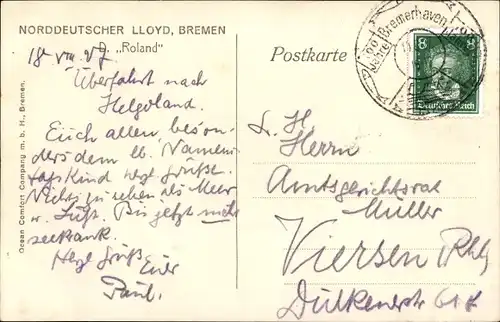 NORDDEUTSCHER LLOYD, BREMEN
D. „Roland"
18 VIII 27
Überfahrt nach
Helgoland.
Euch allen, beson-
ders dem lb. Namens-
tagskind herzl. Grüße.
Nichts zu sehen als Meer
u. Luft. Bis jetzt nicht
seekrank.
Herzl Gruß
Euer
Paul.
Ocean Comfort Company m. b. H., Bremen.
Postkarte
Bremerhaven
8 8
Deutsches Reich
Herrn
Amtsgerichtsrat
Müller
Viersen Rhld
Dülkenerstr